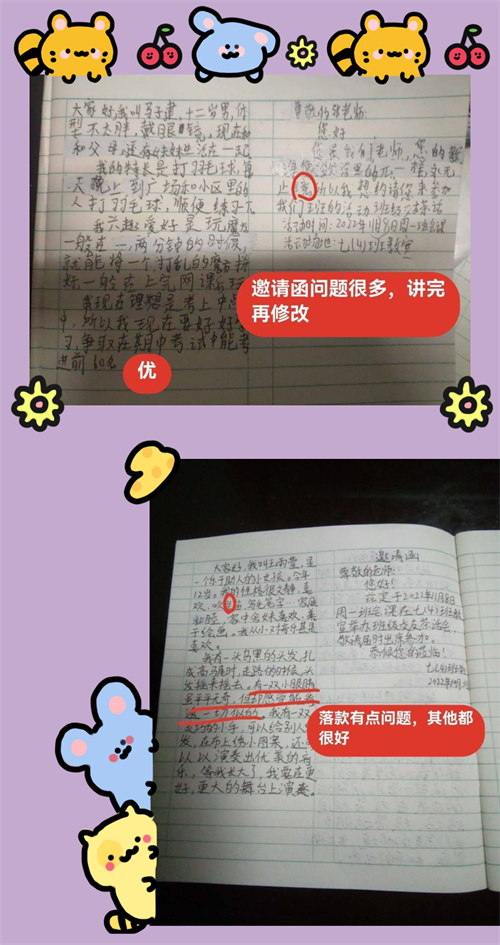 大家好,我叫马子建,十二岁男,体
型不太胖,戴眼镜,现在和
和父母,还有妹妹生活在一起
我的特长是打羽毛球,每
天晚上到广场和小区里的
人打羽毛球,顺便练习
我兴趣爱好是玩魔
一般在一,两分钟的时候,
就能将一个打乱的魔方拼
好一般在上完网课
我现在理想是考上中
,所以我现在要好好
习,争取在期中考试中能考
进前60名
优
尊敬的 老师:
您好
您是我们老师,您的教
止 所以我想约请你来参加
我们班的活动班
活动时间:2022年11月8日周一班会课
活动场地:七(4)班教室
邀请函问题很多,讲完
再修改
大家好,我叫王雨萱,是
一个乐于助人的小女孩。今年
12岁。我的性格很文静,喜
欢、吹 笛,写毛笔字…家庭
和睦,家中会妹喜欢、善
于绘画。我从小对音乐甚是
喜欢。
我有一头乌黑的头发,扎
成高马尾时,走路的时候,头
发摇来摇去。有一双小眼睛
虽平平无奇,但却感觉能看
透一切似的。我有一双
灵巧的小手,可以给别人
发,在布上绣小图案,还
以以演奏出优美的音
乐,等我长大了,我要在更
好,更大的舞台上演奏。
邀请函
尊敬的老师:
您好!
兹定于2022年11月8日
周一班会课在七(4)班教
室举办班级交友茶话会,
敬请届时出席参加。
恭候您的莅临!
七(4)班
2022年
落款有点问题,其他都
很好